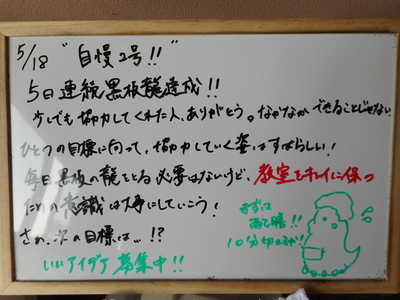 5/18 "自慢2号!!"
5日連続黒板龍達成!!
少しでも協力してくれた人、ありがとう。なかなかできることじゃない。
ひとつの目標に向って、協力していく姿はすばらしい!
毎日黒板の龍をとる必要はないけど、教室をキレイに保つ
ための意識は大事にしていこう!
さぁ、次の目標は…!?
いいアイデア募集中!!
まずは
10分切るぞ!